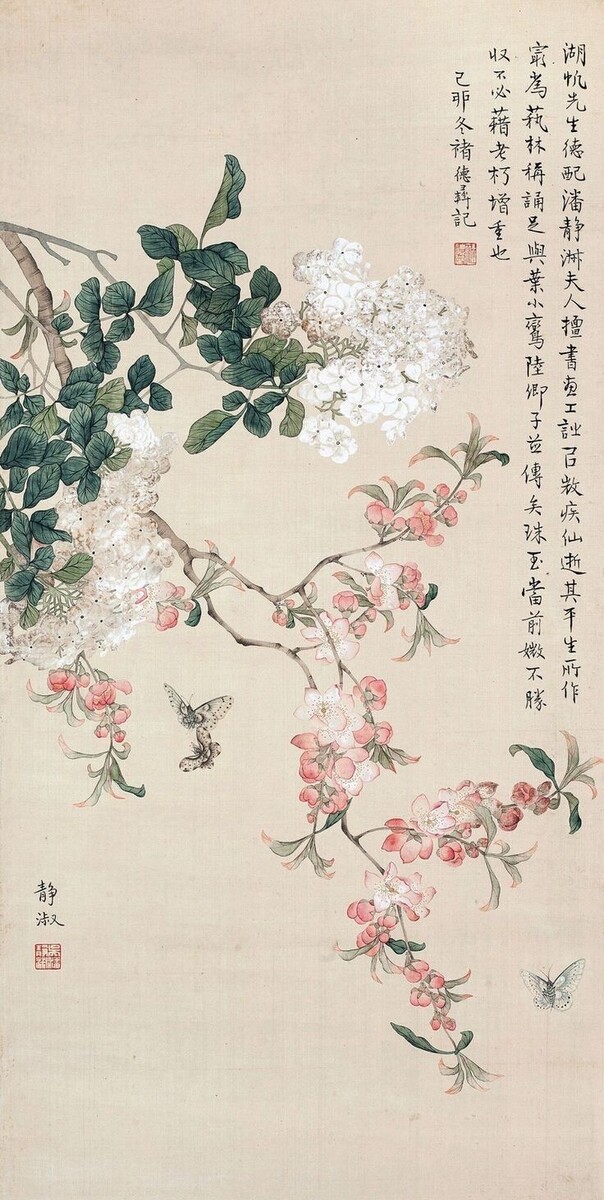 湖帆先生德配潘静淑夫人擅書画工詞召数疾仙逝其平生所作
寀為萟林稱誦足與葉小鸞陸卿子並傳矣珠玉當前媺不勝
収不必藉老朽增重也
己卯冬褚德彝記
静
淑